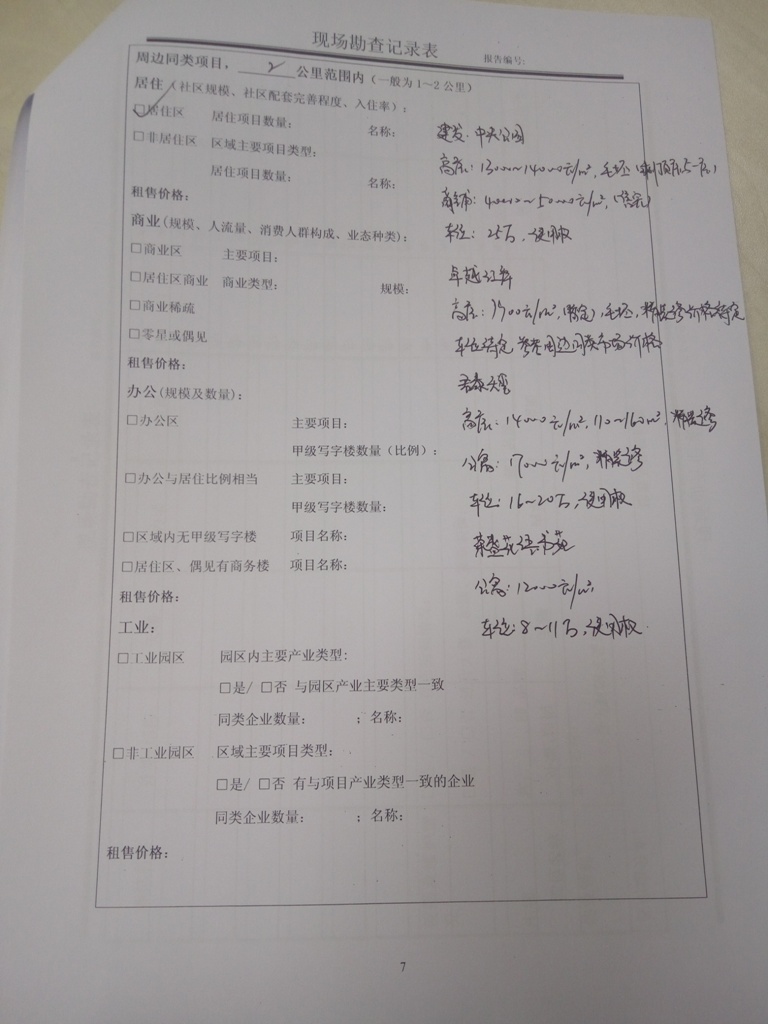 现场勘查记录表
报告编号:
周边同类项目, 2 公里范围内（一般为1～2公里）
居住（社区规模、社区配套完善程度、入住率）:
□居住区 居住项目数量: 名称: 建发·中央公园
□非居住区 区域主要项目类型:
高层: 13000～14000元/m², 毛坯
居住项目数量: 名称:
租售价格: 商铺: 40000～50000元/m²,
商业(规模、人流量、消费人群构成、业态种类): 车位: 25万, 使用权
□商业区 主要项目:
□居住区商业 商业类型: 规模: 卓越
□商业稀疏 高层: 元/m², (暂定), 毛坯, 精装修价格待定
□零星或偶见 车位待定 参考周边同类市场价格
租售价格:
办公(规模及数量):
□办公区 主要项目: 高层: 14000元/m², 110～160m², 精装修
甲级写字楼数量（比例）: 公寓: 17000元/m², 精装修
□办公与居住比例相当 主要项目:
甲级写字楼数量: 车位: 16～20万, 使用权
□区域内无甲级写字楼 项目名称:
□居住区、偶见有商务楼 项目名称:
租售价格: 公寓: 12000元/m²,
工业: 车位: 8～11万, 使用权
□工业园区 园区内主要产业类型:
□是/ □否 与园区产业主要类型一致
同类企业数量: ; 名称:
□非工业园区 区域主要项目类型:
□是/ □否 有与项目产业类型一致的企业
同类企业数量: ; 名称:
租售价格:
7